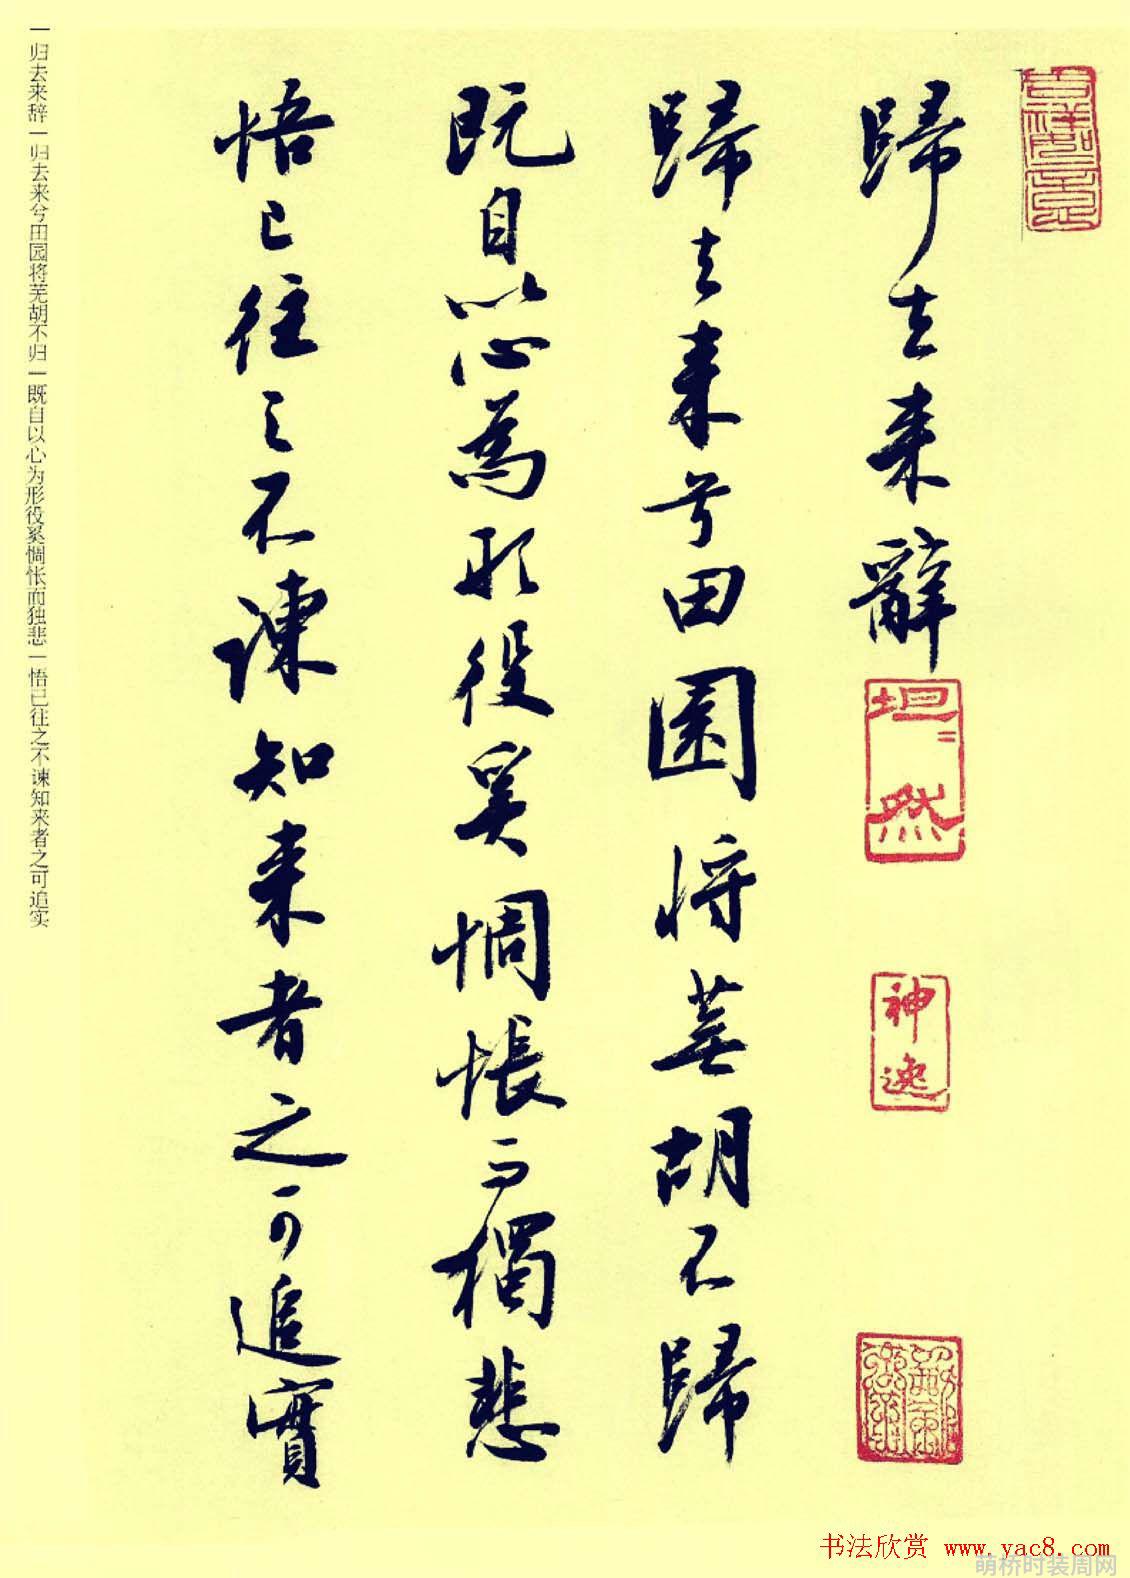 歸去来辭
歸去来兮田園将蕪胡不歸
既自以心為形役奚惆悵而獨悲
悟已往之不諫知来者之可追實
坦然
神逸
一归去来辞一归去来兮田园将芜胡不归一既自以心为形役奚惆怅而独悲一悟已往之不谏知来者之可追实
书法欣赏 www.yac8.com
萌桥时装周网